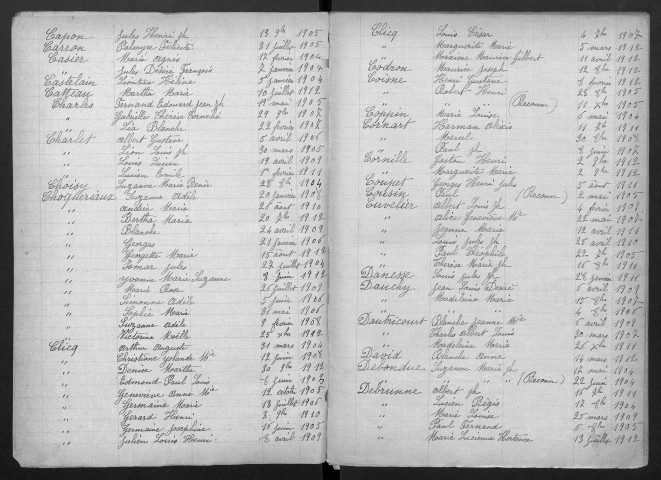 Capon Jules Henri Jh 13 9bre 1905
Carron Palmyre Félicité 31 juillet 1905
Casier Marie Agnès 12 février 1904
" Jules Désiré François 2 janvier 1904
Castelain Hélène 5 janvier 1904
Catteau Marthe Marie 10 juillet 1912
Charles Fernand Edouard Jean Jh 19 mai 1905
" Gabrielle Thérèse Cornélie 29 9bre 1907
" Léa Blanche 22 février 1907
Charlet Albert Gustave 5 avril 1906
" Léon Louis Jh 30 mars 1905
" Louis Lucien 19 avril 1909
" Lucien Emile 1 février 1911
Choisy Suzanne Marie Renée 28 8bre 1904
Choqueriaux Suzanne Adèle 20 janvier 1908
" Amélie Marie 21 août 1910
" Bertha Maria 20 1912
" Blanche 24 avril 1909
" Georges 21 janvier 1906
" Georgette Marie 15 août 1912
" Jules 27 juillet 1904
" Yvonne Marie Suzanne 8 juin 1912
" Marie Rose 26 juillet 1909
" Simonne Adèle 5 juin 1906
" Sophie Marie 31 mai 1906
" Suzanne Adèle 9 février 1908
" Victorine Noëlle 25 Xbre 1912
Clicq Arthur August 31 mars 1904
" Christiane Yolande Mie 12 juin 1908
" Denise Marthe 30 9bre 1912
" Edmond Paul Louis 8 juin 1907
" Geneviève Anne Mie 12 octobre 1905
" Germaine Marie 13 juillet 1906
" Gérard Henri 3 9bre 1910
" Germaine Joséphine 10 juin 1905
" Julien Louis Henri 8 avril 1909
Clicq Louis César 4 1907
" Marguerite Marie 5 mars 1912
" Maxime Maurice Gilbert 11 avril 1912
Codron Maurice Joseph 12 8bre 1912
Coisne Henri Gustave 8 février 1912
" Robert Henri 28 8bre 1905
" " " (Reconn) 11 Xbre 1905
Coppin Marie Louise 6 mai 1904
Cornart Herman Alexis 11 1911
" Marcel 30 8bre 1908
" Paul Jh 8 juin 1907
Cornille Gaston Henri 2 9bre 1912
" Marguerite Marie 2 9bre 1912
Coupet Georges Henri Jules 5 août 1911
Cousin Paul (Reconn) 2 mai 1905
Cuvelier Albert Louis Jh 4 février 1907
" Alice Geneviève Mie 22 mai 1907
" Jeanne Marie 12 avril 1911
" Louis Jules Jh 25 avril 1910
" Paul Théophile 22 1905
" Thérèse Marie Jh 16 8bre 1911
Danesse Louis Jules Jh 28 janvier 1911
Dauchy Jean Louis Désiré 6 avril 1909
" Madeleine Marie 15 8bre 1907
" " " 4 8bre 1906
Dautricourt Blanche Jeanne Mie 6 avril 1909
" Charles Albert Louis 30 mars 1907
" Magdeleine Marie 26 1911
David Blanche Anna 14 mars 1912
Debondue Suzanne Marie Jh 12 mai 1904
" " " (Reconn) 22 juin 1904
Debrunne Albert Jh 15 1911
" Lucien Régis 12 8bre 1904
" Marie Louise 25 mars 1909
" Paul Fernand 5 8bre 1905
" Marie Lucienne Hortence 13 juillet 1912